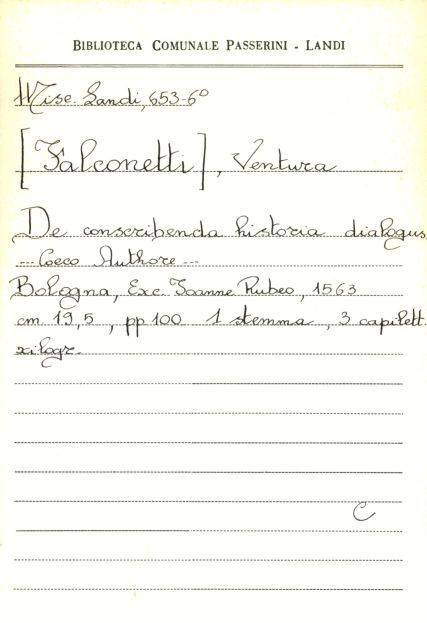 BIBLIOTECA COMUNALE PASSERINI - LANDI
Misc. Landi, 653-6º
[Falconetti], Ventura
De conscribenda historia dialogus
--- Coeco Authore ---
Bologna, Exc. Joanne Rubeo, 1563
cm 19,5 , pp 100 1 stemma , 3 capilett.
xilogr.
C